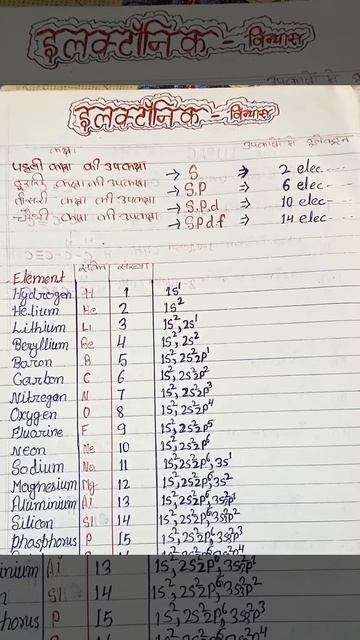 इलक्टॉनिक - विन्यास
इलक्टॉनिक - विन्यास
कक्षा उपकक्षा में इलेक्ट्रान
पहली कक्षा की उपकक्षा → S → 2 elec----
दूसरी कक्षा की उपकक्षा → S,P ⇒ 6 elec----
तीसरी कक्षा की उपकक्षा → S,P,d ⇒ 10 elec----
चौथी कक्षा की उपकक्षा → S,P,d,f ⇒ 14 elec----
Element संकेत संख्या
Hydrogen H 1 1S¹
Helium He 2 1S²
Lithium Li 3 1S²,2S¹
Beryllium Be 4 1S²,2S²
Boron B 5 1S²,2S²2p¹
Carbon C 6 1S²,2S²2p²
Nitrogen N 7 1S²,2S²2p³
Oxygen O 8 1S²,2S²2p⁴
Fluorine F 9 1S²,2S²2p⁵
Neon Ne 10 1S²,2S²2p⁶
Sodium Na 11 1S²,2S²2p⁶,3S¹
Magnesium Mg 12 1S²,2S²2p⁶,3S²
Aluminium Al 13 1S²,2S²2p⁶,3S²3p¹
Silicon Si 14 1S²,2S²2p⁶,3S²3p²
Phosphorus P 15 1S²,2S²2p⁶,3S²3p³
inium Al 13 1S²,2S²2p⁶,3S²3p¹
n Si 14 1S²,2S²2p⁶,3S²3p²
horus P 15 1S²,2S²2p⁶,3S²3p³